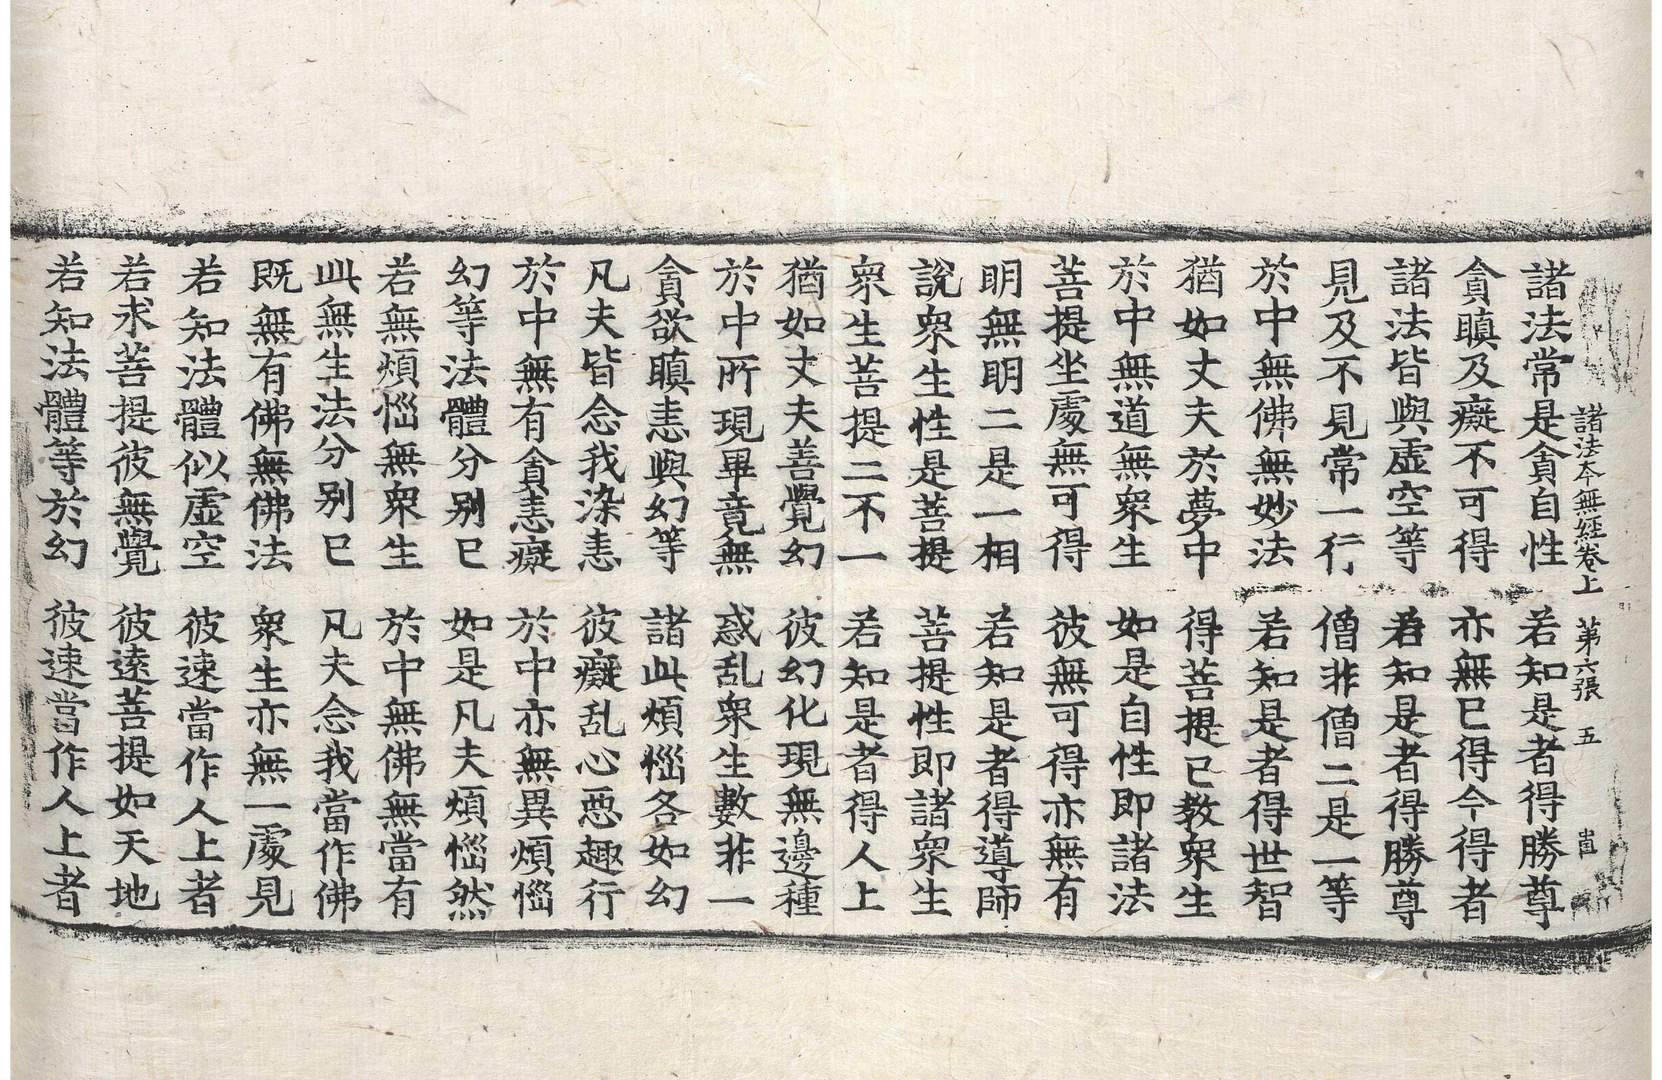 諸法本無經卷上 第六張 五
諸法常是貪自性 若知是者得勝尊
貪瞋及癡不可得 亦無已得今得者
諸法皆與虛空等 若知是者得勝尊
見及不見常一行 僧非僧二是一等
於中無佛無妙法 若知是者得世智
猶如丈夫於夢中 得菩提已教衆生
於中無道無衆生 如是自性即諸法
菩提坐處無可得 彼無可得亦無有
明無明二是一相 若知是者得導師
說衆生性是菩提 菩提性即諸衆生
衆生菩提二不一 若知是者得人上
猶如丈夫善覺幻 彼幻化現無邊種
於中所現畢竟無 惑乱衆生數非一
貪欲瞋恚與幻等 諸此煩惱各如幻
凡夫皆念我染恚 彼癡乱心惡趣行
於中無有貪恚癡 於中亦無異煩惱
幻等法體分别已 如是凡夫煩惱然
若無煩惱無衆生 於中無佛無當有
此無生法分别已 凡夫念我當作佛
既無有佛無佛法 衆生亦無一處見
若知法體似虛空 彼速當作人上者
若求菩提彼無覺 彼遠菩提如天地
若知法體等於幻 彼速當作人上者